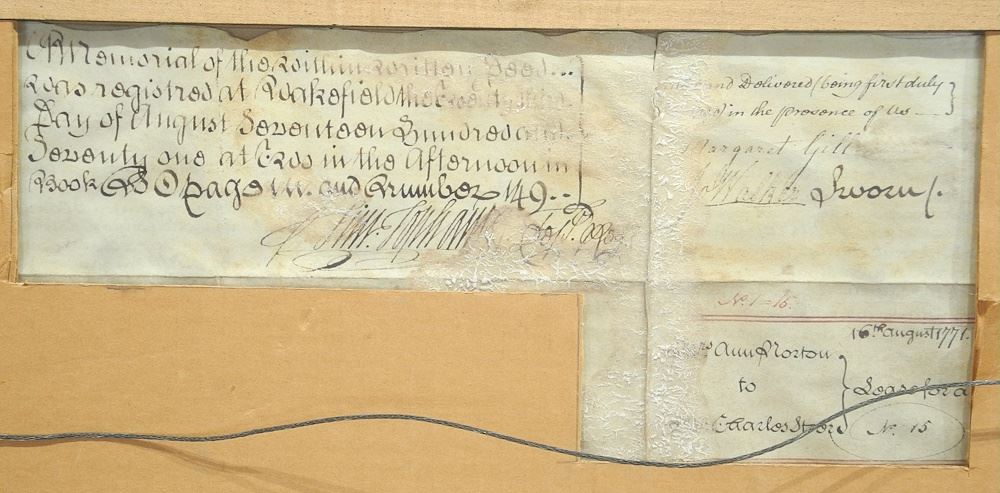 A Memorial of the within written Deed
was registred at Wakefield the Twenty
Day of August Seventeen Hundred and
Seventy one at Two in the Afternoon in
Book page and Number 149
and Delivered (being first duly
in the presence of us
Margaret Gill
Walker Sworn
No. 1 = 16.
16th August 1771.
Ann Norton
to
Lease for a
Charles Steer
No. 15